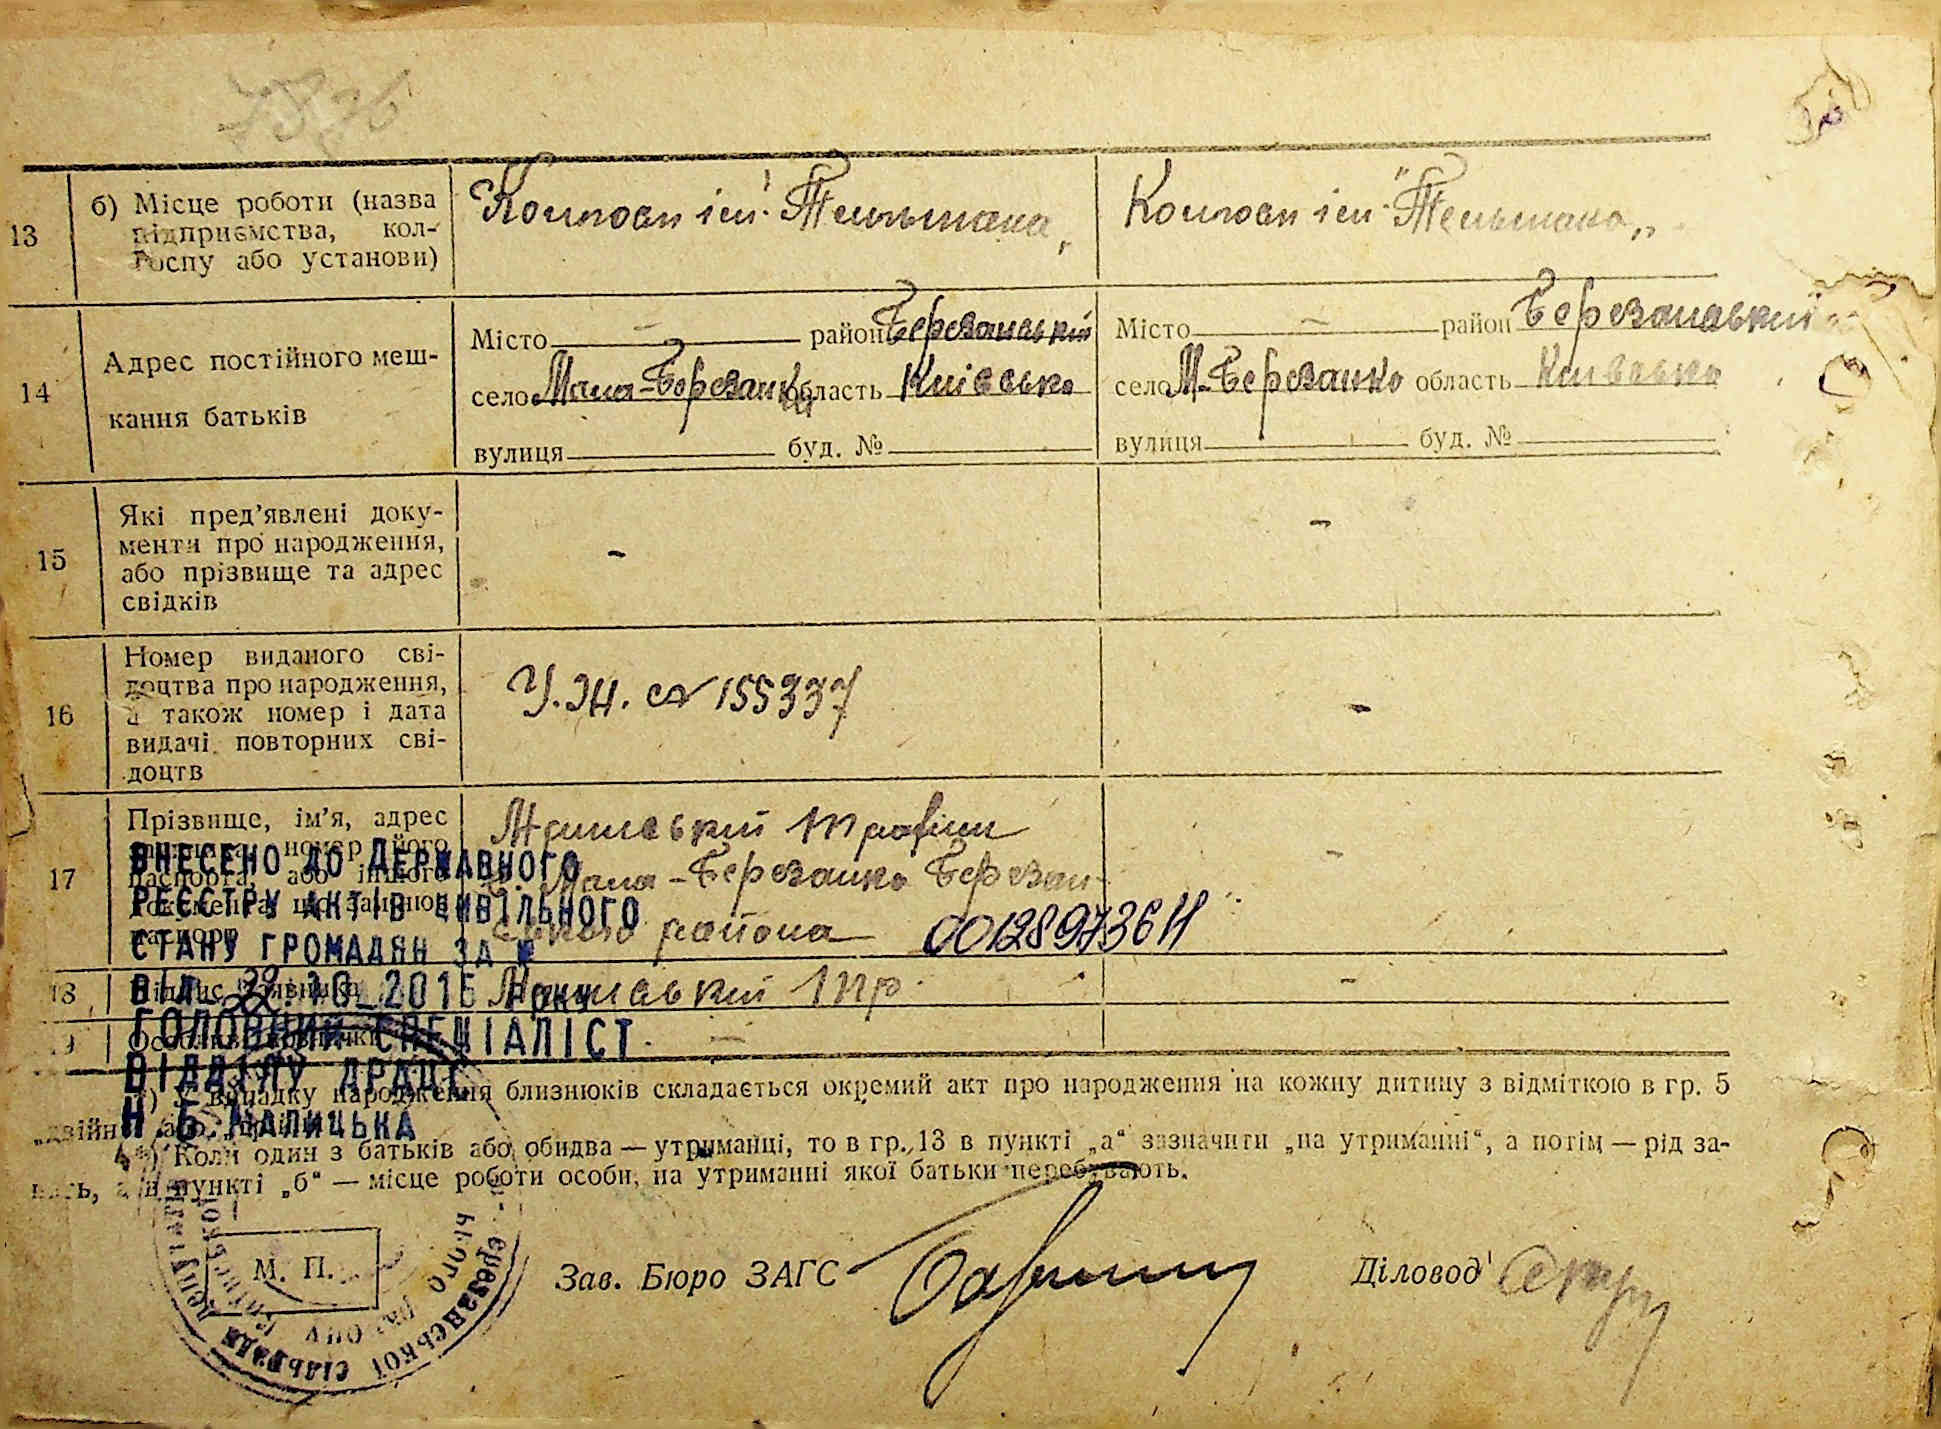 13
б) Місце роботи (назва
підприємства, кол-
госпу або установи)
Колгосп ім. Тельмана„
Колгосп ім "Тельмана„
14
Адрес постійного меш-
кання батьків
Місто — район Березанський
село Мала-Березанка область Київська
вулиця буд. №
Місто — район Березанський
село М-Березанка область Київська
вулиця буд. №
15
Які пред'явлені доку-
менти про народження,
або прізвище та адрес
свідків
-
-
16
Номер виданого сві-
доцтва про народження,
а також номер і дата
видачі повторних сві-
доцтв
У.Ж. № 155337
-
17
Прізвище, ім'я, адрес
номер його
паспорта або іншого
Трофим
Мала-Березанка Березан-
ського района 00128973611
-
18
Тр.
-
-
ВНЕСЕНО ДО ДЕРЖАВНОГО
РЕЄСТРУ АКТІВ ЦИВІЛЬНОГО
СТАНУ ГРОМАДЯН ЗА №
ВІД 10 2016 року
ГОЛОВНИЙ СПЕЦІАЛІСТ
ВІДДІЛУ ДРАЦС
Н Б МАЛИЦЬКА
*) У випадку народження близнюків складається окремий акт про народження на кожну дитину з відміткою в гр. 5
„двійня" або
**) Коли один з батьків або обидва — утриманці, то в гр. 13 в пункті „а" зазначити „на утриманні", а потім — рід за-
нять, а в пункті „б" — місце роботи особи, на утриманні якої батьки перебувають.
М. П.
Зав. Бюро ЗАГС
Діловод
Березанської сільради